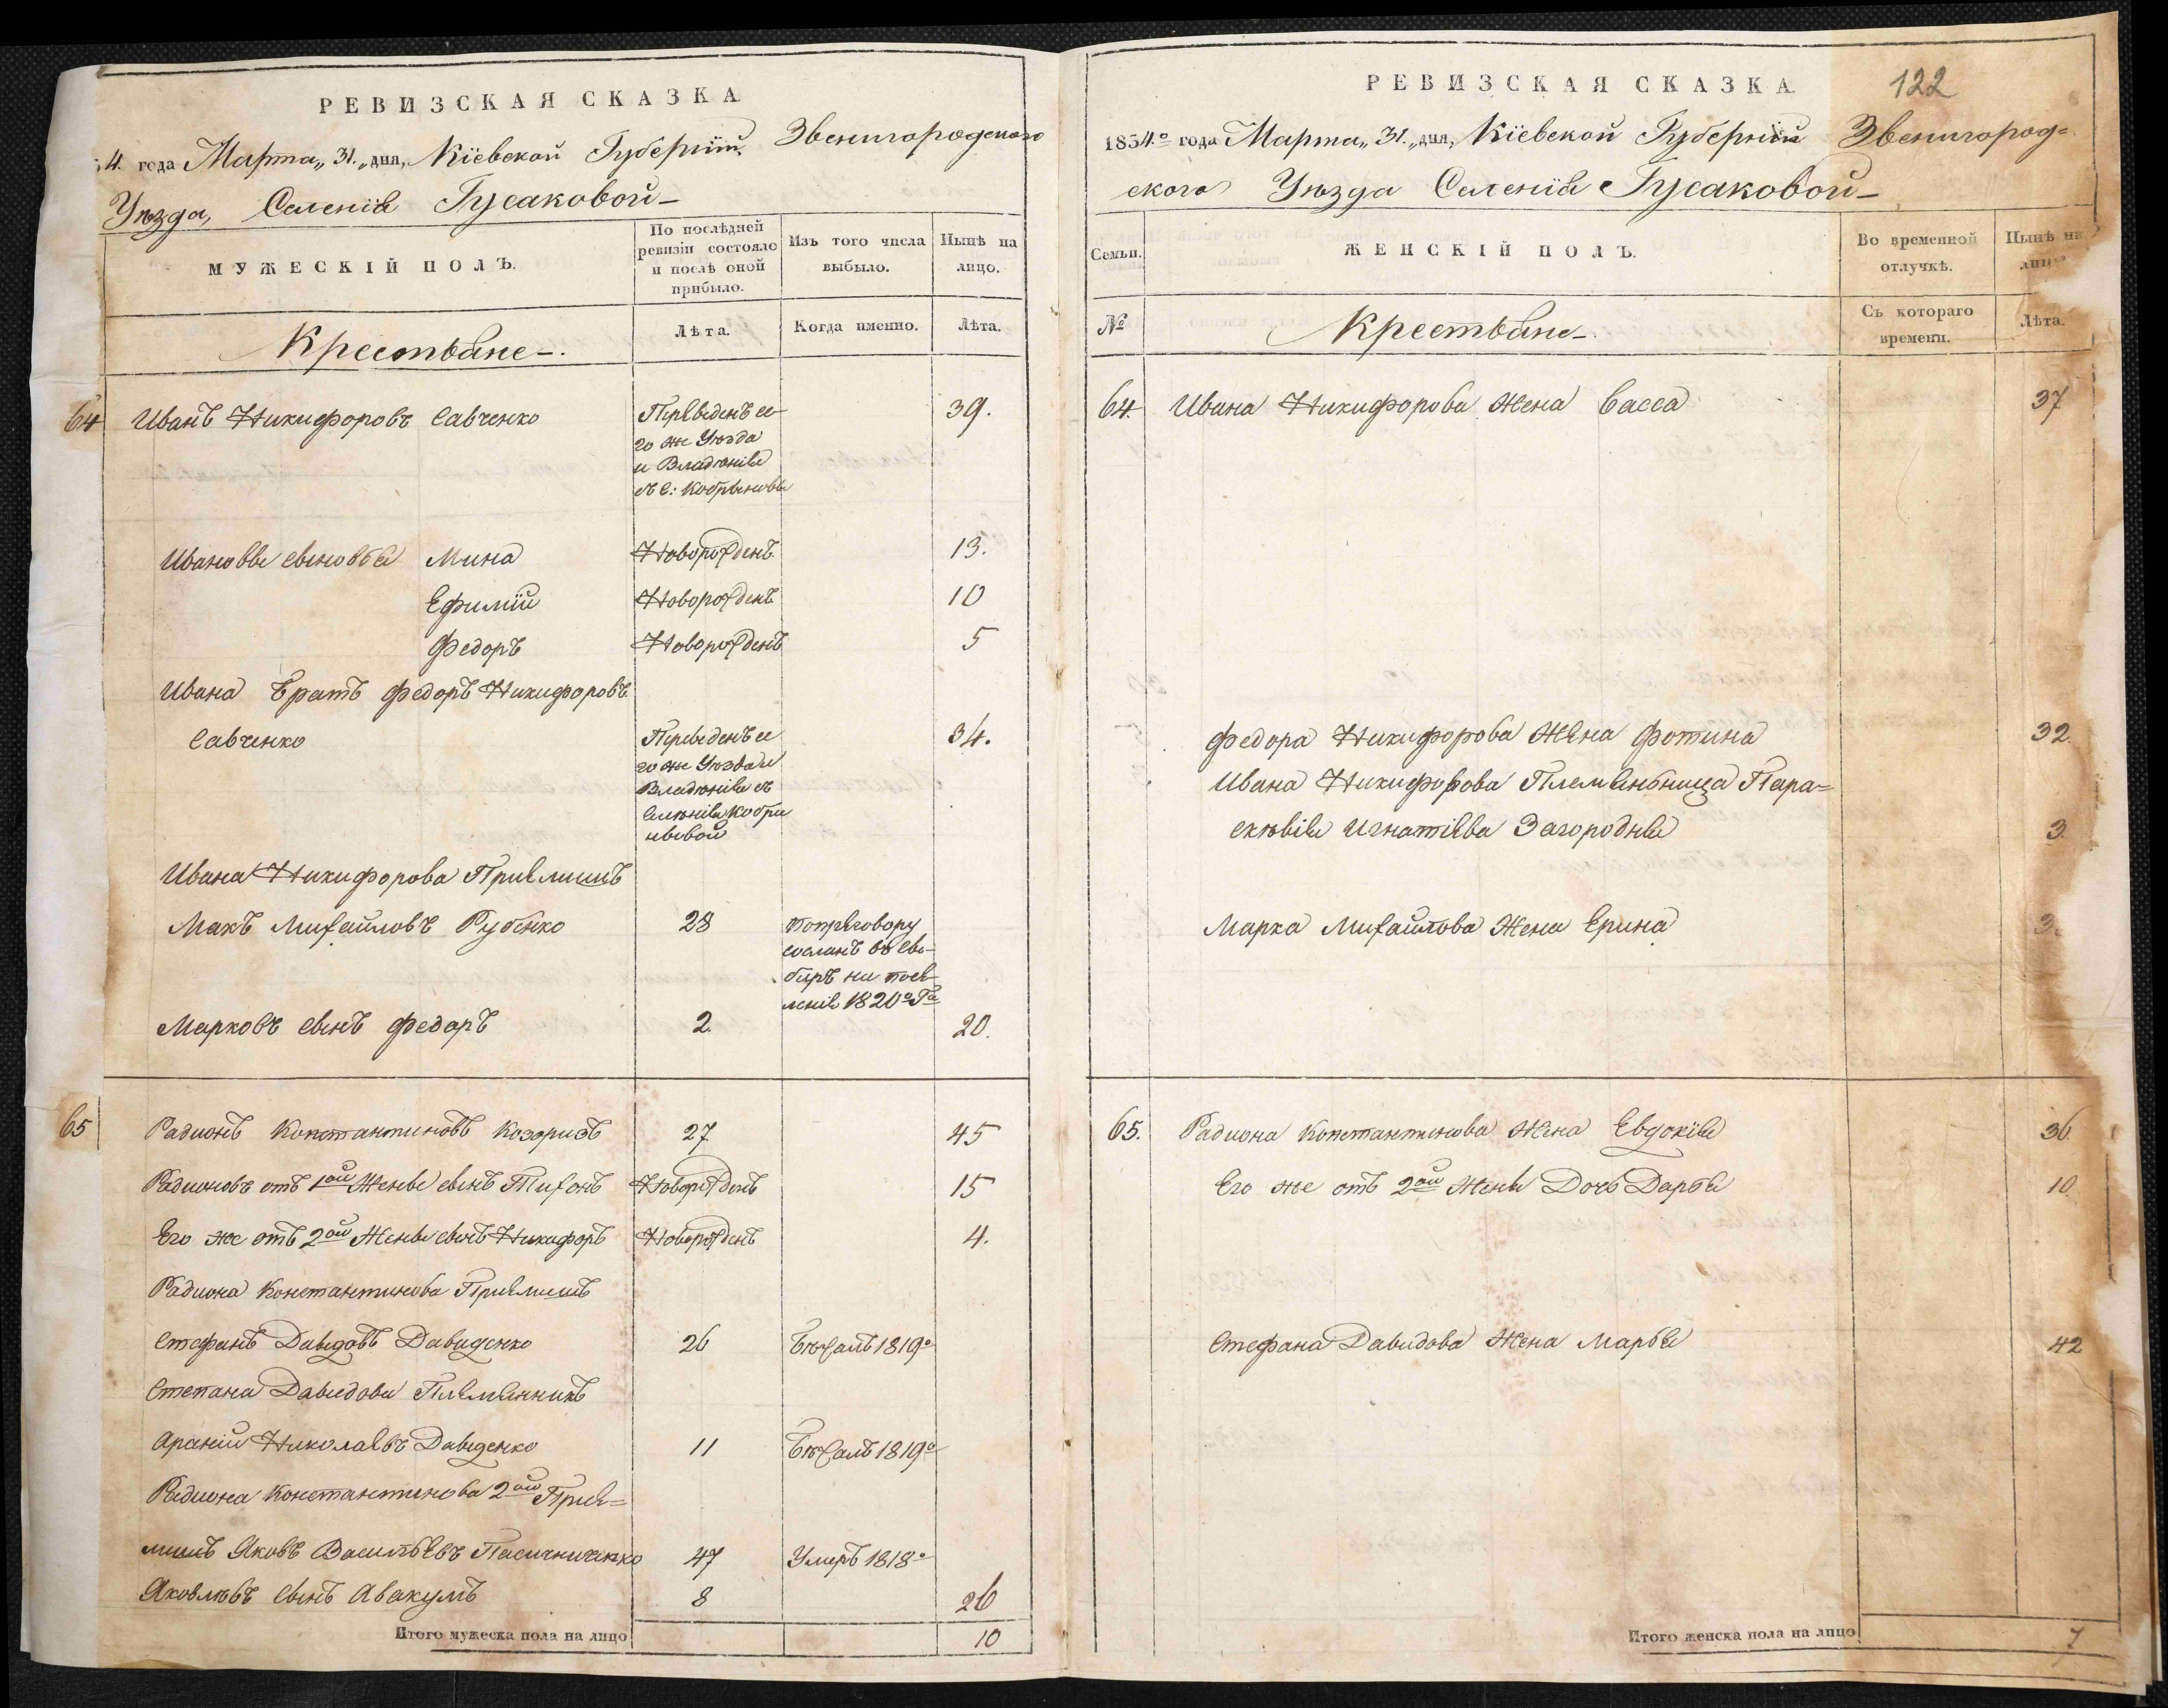 РЕВИЗСКАЯ СКАЗКА
4. года Марта „31.„ дня, Кіевской Губерніи Звенигородскаго
Уѣзда, Селенія Гусаковой
МУЖЕСКІЙ ПОЛЪ.
По послѣдней ревизіи состояло и послѣ оной прибыло.
Изъ того числа выбыло.
Нынѣ на лицо.
Крестьяне
Лѣта.
Когда именно.
Лѣта.
64 Иванъ Никифоровъ Савченко Переведенъ се- 39.
го же Уѣзда
и Владѣнія
съ С:
Ивановы сыновья Мина Новорожденъ 13.
Ефимій Новорожденъ 10
Федоръ Новорожденъ 5
Ивана Братъ Федоръ Никифоровъ
Савченко Переведенъ се 34.
го же Уѣзда и
Владѣнія съ
Селенія Кобри
новой
Ивана Никифорова Пріемышъ
Макъ Михайловъ Рубенко 28 По приговору
сосланъ въ Си-
биръ на посе-
леніе 1820º Гª
Марковъ сынъ Федоръ 2. 20.
65 Радионъ Константиновъ Козоризъ 27 45
Радионовъ отъ 1ой Жены сынъ Тихонъ Новорожденъ 15
Его же отъ 2ой Жены сынъ Никифоръ Новорожденъ 4.
Радиона Константинова Пріемышъ
Стефанъ Давидовъ Давиденко 26 Бѣжалъ 1819º
Степана Давидова Племянникъ
Николаевъ Давиденко 11 Бѣжалъ 1819º
Радиона Константинова 2ой Пріе=
мышъ Яковъ Васильевъ Пасичниченко 47 Умеръ 1818º
Яковлевъ Сынъ Авакумъ 8 26
Итого мужеска пола на лицо 10
РЕВИЗСКАЯ СКАЗКА
122
1854.º года Марта „31.„ дня, Кіевской Губерніи Звенигород=
скаго Уѣзда Селенія Гусаковой
Семьи.
ЖЕНСКІЙ ПОЛЪ.
Во временной отлучкѣ.
Нынѣ на лицо
№
Крестьяне
Съ котораго времени.
Лѣта.
64. Ивана Никифорова Жена Васса 37
Федора Никифорова Жена Фотина 32.
Ивана Никифорова Племянница Пара=
скѣвія Игнатіева Загородняя 3.
Марка Михайлова Жена Ерина
65. Радиона Константинова Жена Евдокія 36.
Его же отъ 2ой Жены Дочь Дарья 10.
Стефана Давидова Жена Марья 42
Итого женска пола на лицо 7